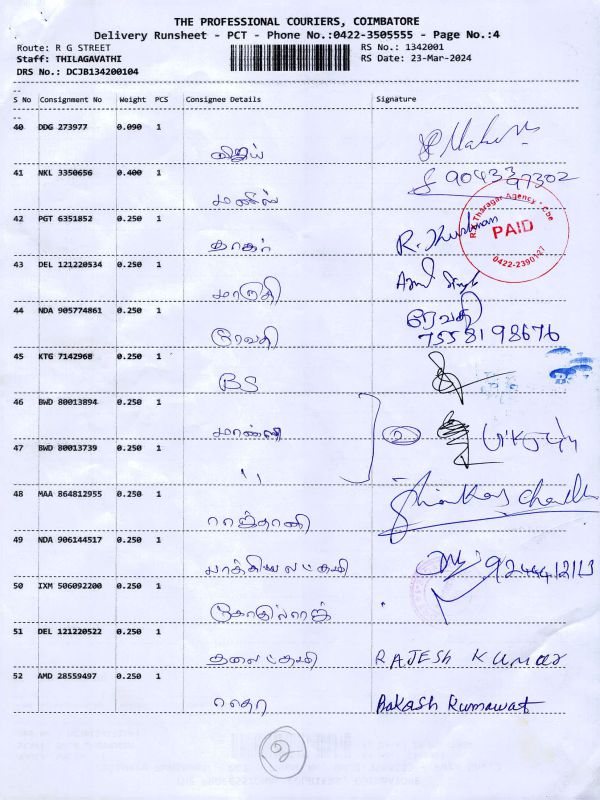 THE PROFESSIONAL COURIERS, COIMBATORE
Delivery Runsheet - PCT - Phone No.:0422-3505555 - Page No.:4
Route: R G STREET RS No.: 1342001
Staff: THILAGAVATHI RS Date: 23-Mar-2024
DRS No.: DCJB134200104
S No Consignment No Weight PCS Consignee Details Signature
40 DDG 273977 0.090 1
விஜய்
41 NKL 3350656 0.400 1
மணிஸ் 9043397302
42 PGT 6351852 0.250 1
தாகர் R.
R.S. Tharagar Agency * Cbe
PAID
0422-2390127
43 DEL 121220534 0.250 1
மாருதி
44 NDA 905774861 0.250 1 ரேவதி
ரேவதி 7558198676
45 KTG 7142968 0.250 1
BS
46 BWD 80013894 0.250 1
2
47 BWD 80013739 0.250 1
''
48 MAA 864812955 0.250 1
ராஜ்தானி
49 NDA 906144517 0.250 1
பாக்கியலட்சுமி
50 IXM 506092200 0.250 1
கோதில்ராஜ்
51 DEL 121220522 0.250 1
தனலட்சுமி RAJESH KUMAR
52 AMD 28559497 0.250 1
Bakash Kumawat
2